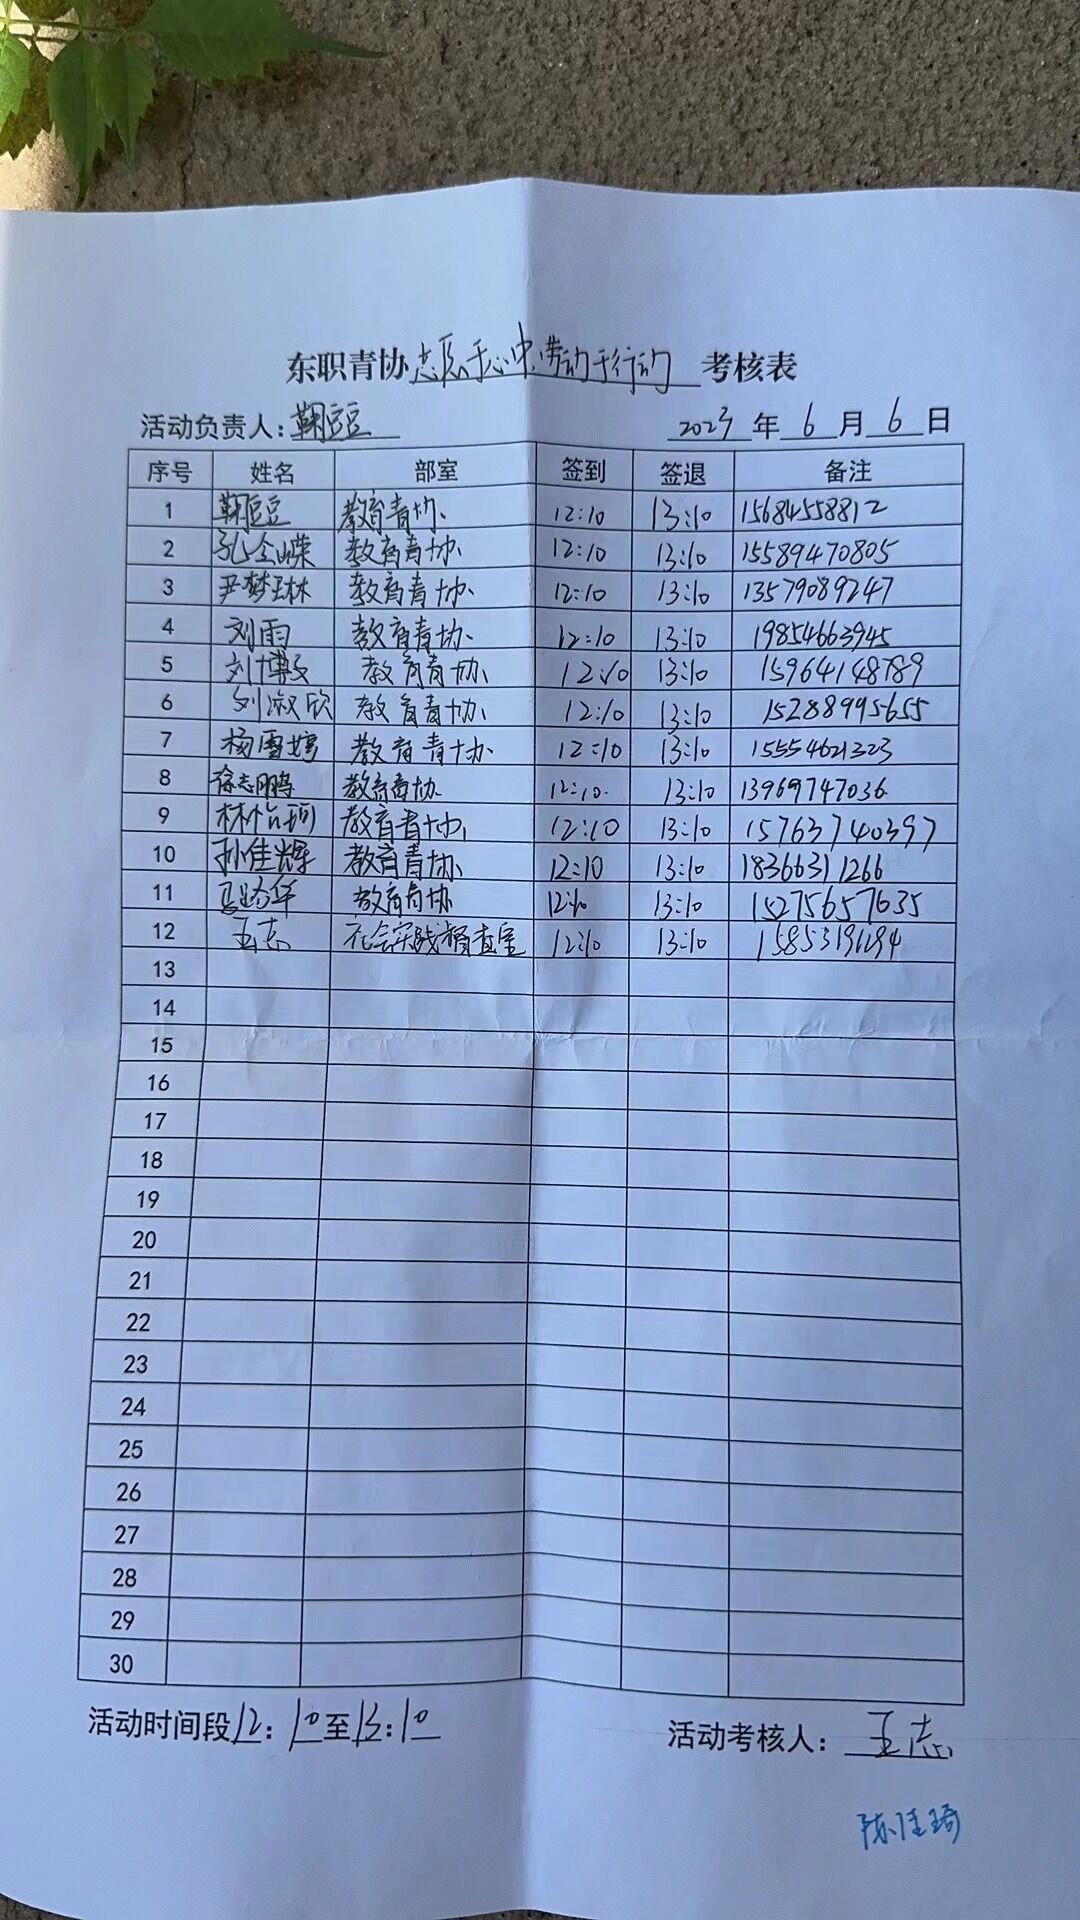 东职青协志愿于心中,劳动于行动考核表
活动负责人:鞠豆豆 2023年6月6日
序号 姓名 部室 签到 签退 备注
1 鞠豆豆 教育青协 12:10 13:10 15684558812
2 孔令嵘 教育青协 12:10 13:10 15589470805
3 尹梦琳 教育青协 12:10 13:10 13579089247
4 刘雨 教育青协 12:10 13:10 19854663945
5 刘博文 教育青协 12:10 13:10 15964148789
6 刘淑欣 教育青协 12:10 13:10 15288995655
7 杨雪婷 教育青协 12:10 13:10 15554621323
8 徐志鹏 教育青协 12:10 13:10 13969747036
9 林怡珂 教育青协 12:10 13:10 15763740397
10 孙佳辉 教育青协 12:10 13:10 18366311266
11 教育青协 12:10 13:10 15275657635
12 王志 社会实践稽查室 12:10 13:10 15853191294
13
14
15
16
17
18
19
20
21
22
23
24
25
26
27
28
29
30
活动时间段12:10至13:10 活动考核人:王志
陈佳琦